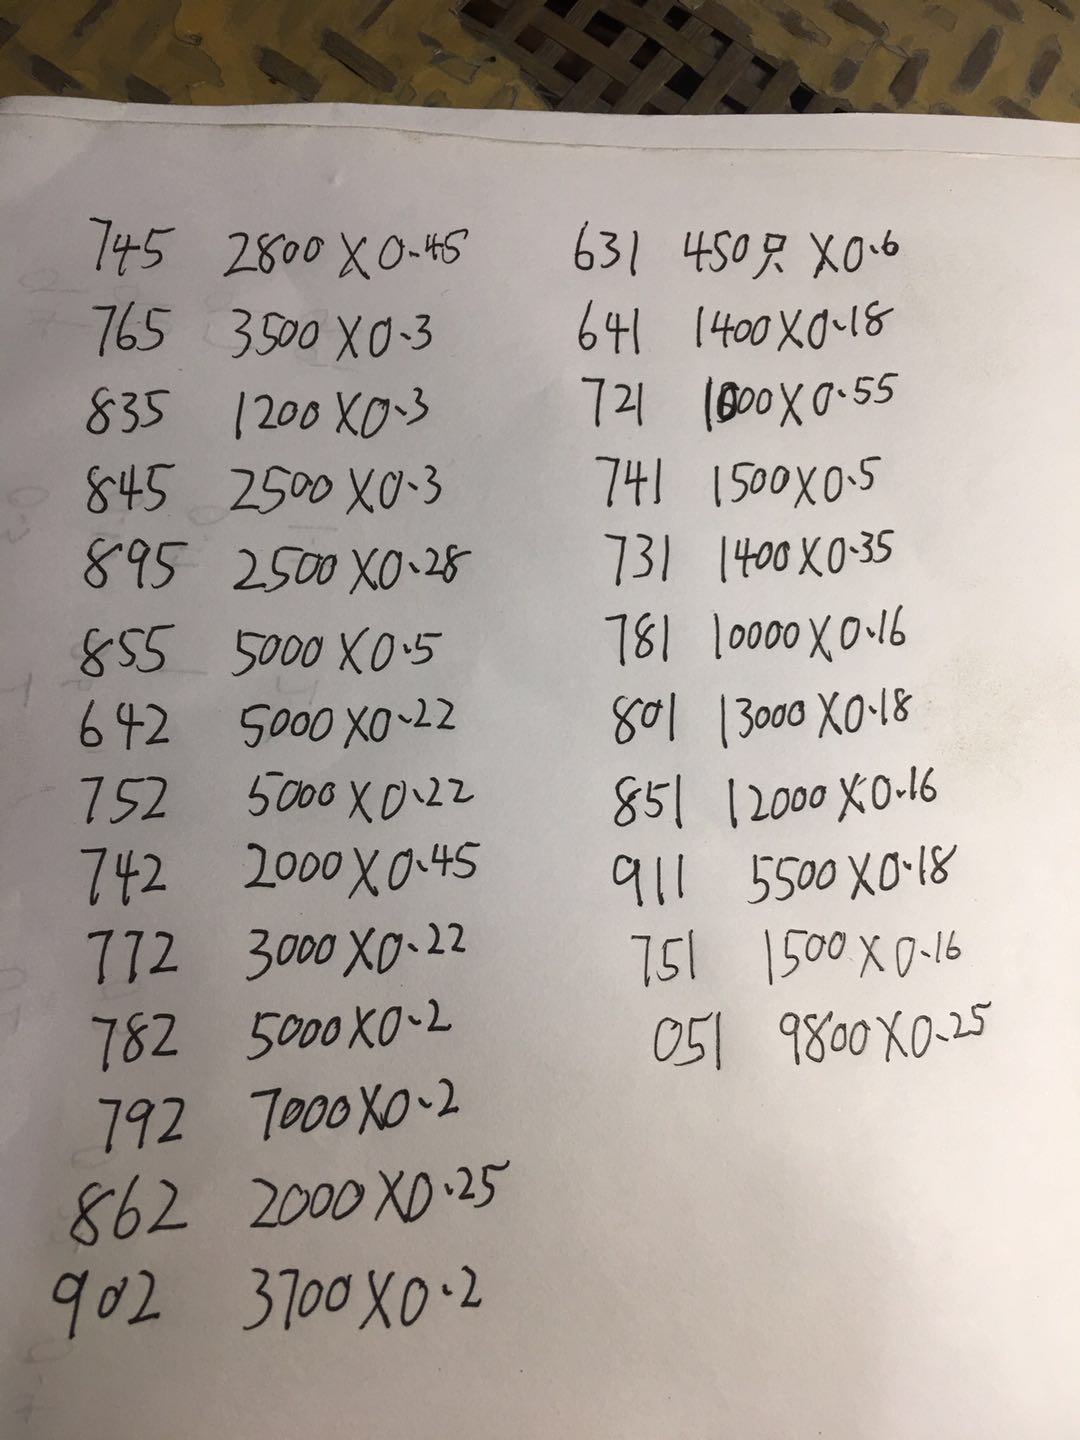 745 2800X0.45
765 3500X0.3
835 1200X0.3
845 2500X0.3
895 2500X0.28
855 5000X0.5
642 5000X0.22
752 5000X0.22
742 2000X0.45
772 3000X0.22
782 5000X0.2
792 7000X0.2
862 2000X0.25
902 3700X0.2
631 450只 X0.6
641 1400X0.18
721 X0.55
741 1500X0.5
731 1400X0.35
781 10000X0.16
801 13000X0.18
851 12000X0.16
911 5500X0.18
751 1500X0.16
051 9800X0.25